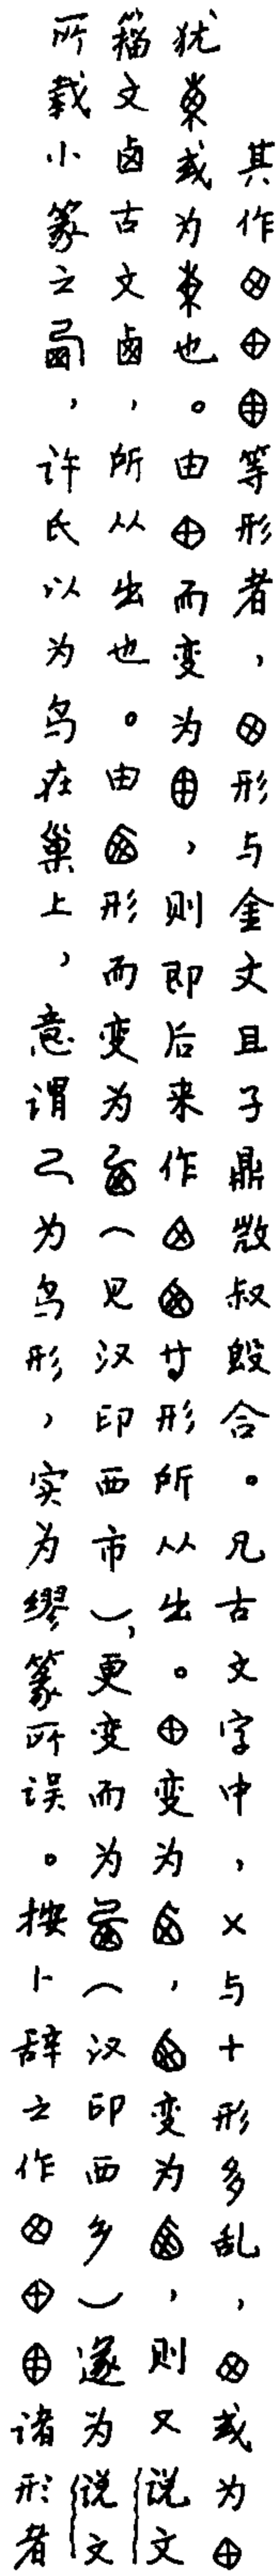 其作⊗⊕等形者，⊗形与金文且子鼎散叔𣪘合。凡古文字中，×与十形多乱，⊗或为⊕
犹或为也。由⊕而变为，则即后来作等形所从出。⊕变为，变为，则又说文
籀文卥古文卤，所从出也。由形而变为（见汉印西市），更变而为（汉印西乡）遂为说文
所载小篆之，许氏以为鸟在巢上，意谓己为鸟形，实为缪篆所误。按卜辞之作⊗⊕诸形者